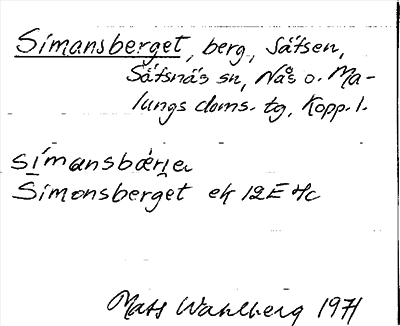 Simansberget, berg, Säfsen,
Säfsnäs sn, Nås o. Ma-
lungs doms. tg, Kopp. l.
Simonsberget ek 12E 4c
Mats Wahlberg 1971